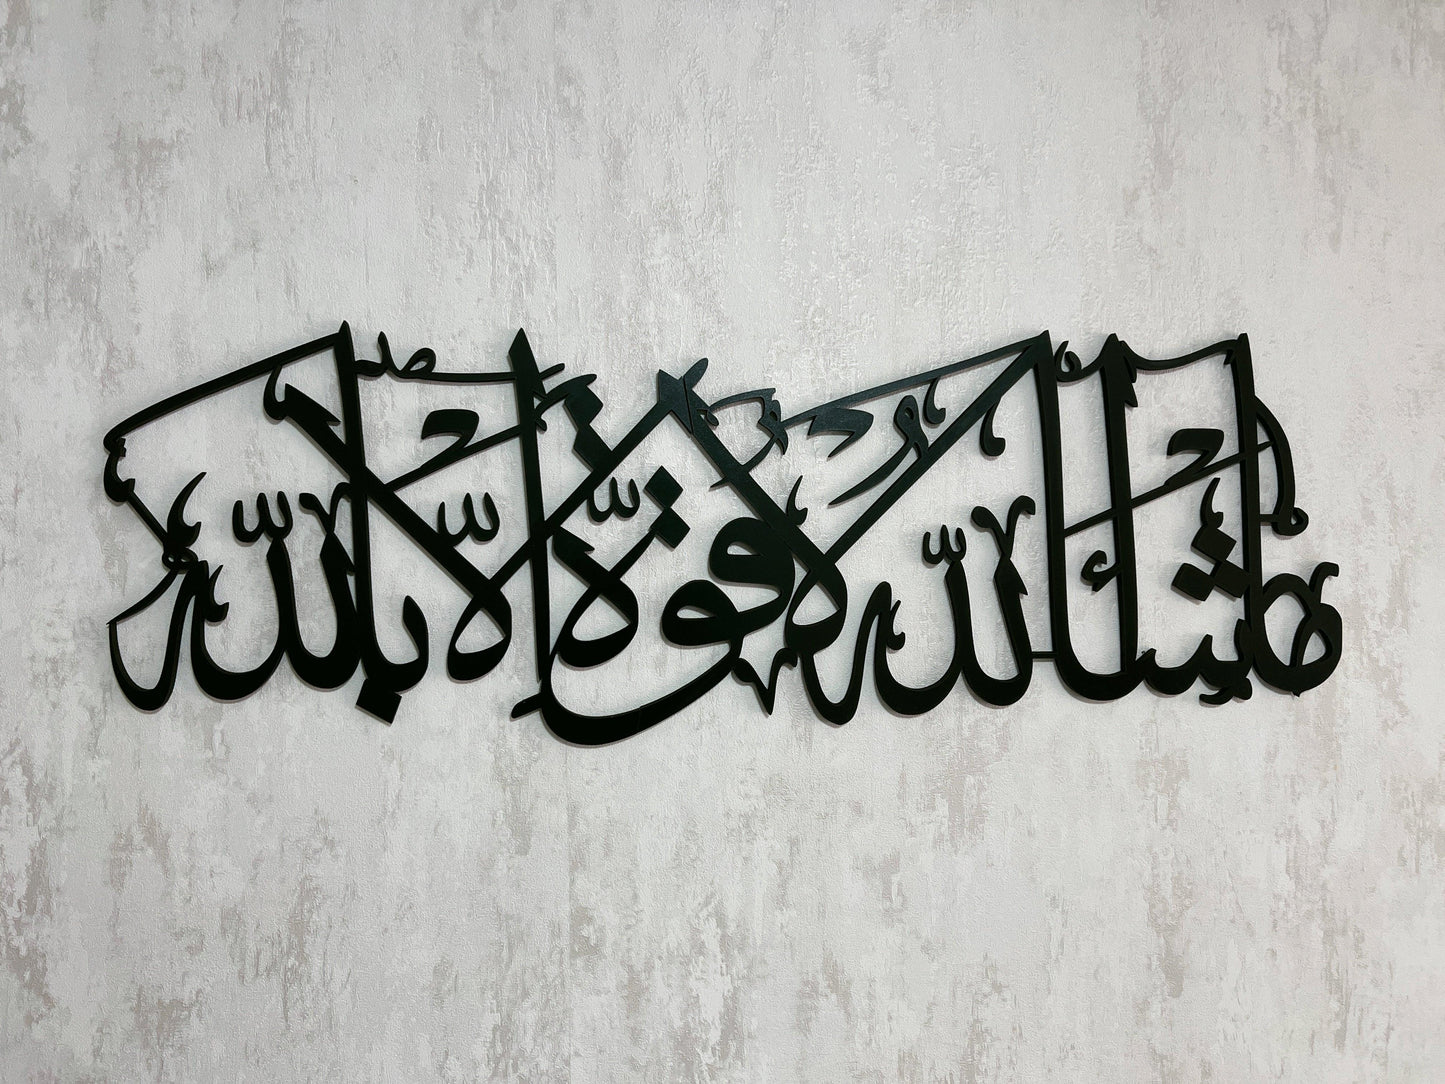 ماشاء الله لا قوة إلا بالله